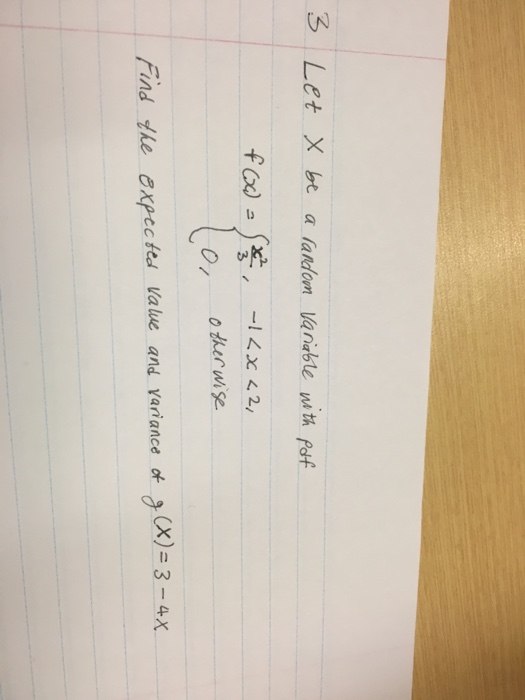 3 Let X be a random variable with pdf
f(x) = { x²/3, -1 < x < 2,
0, otherwise
Find the expected value and variance of g(X) = 3 - 4X